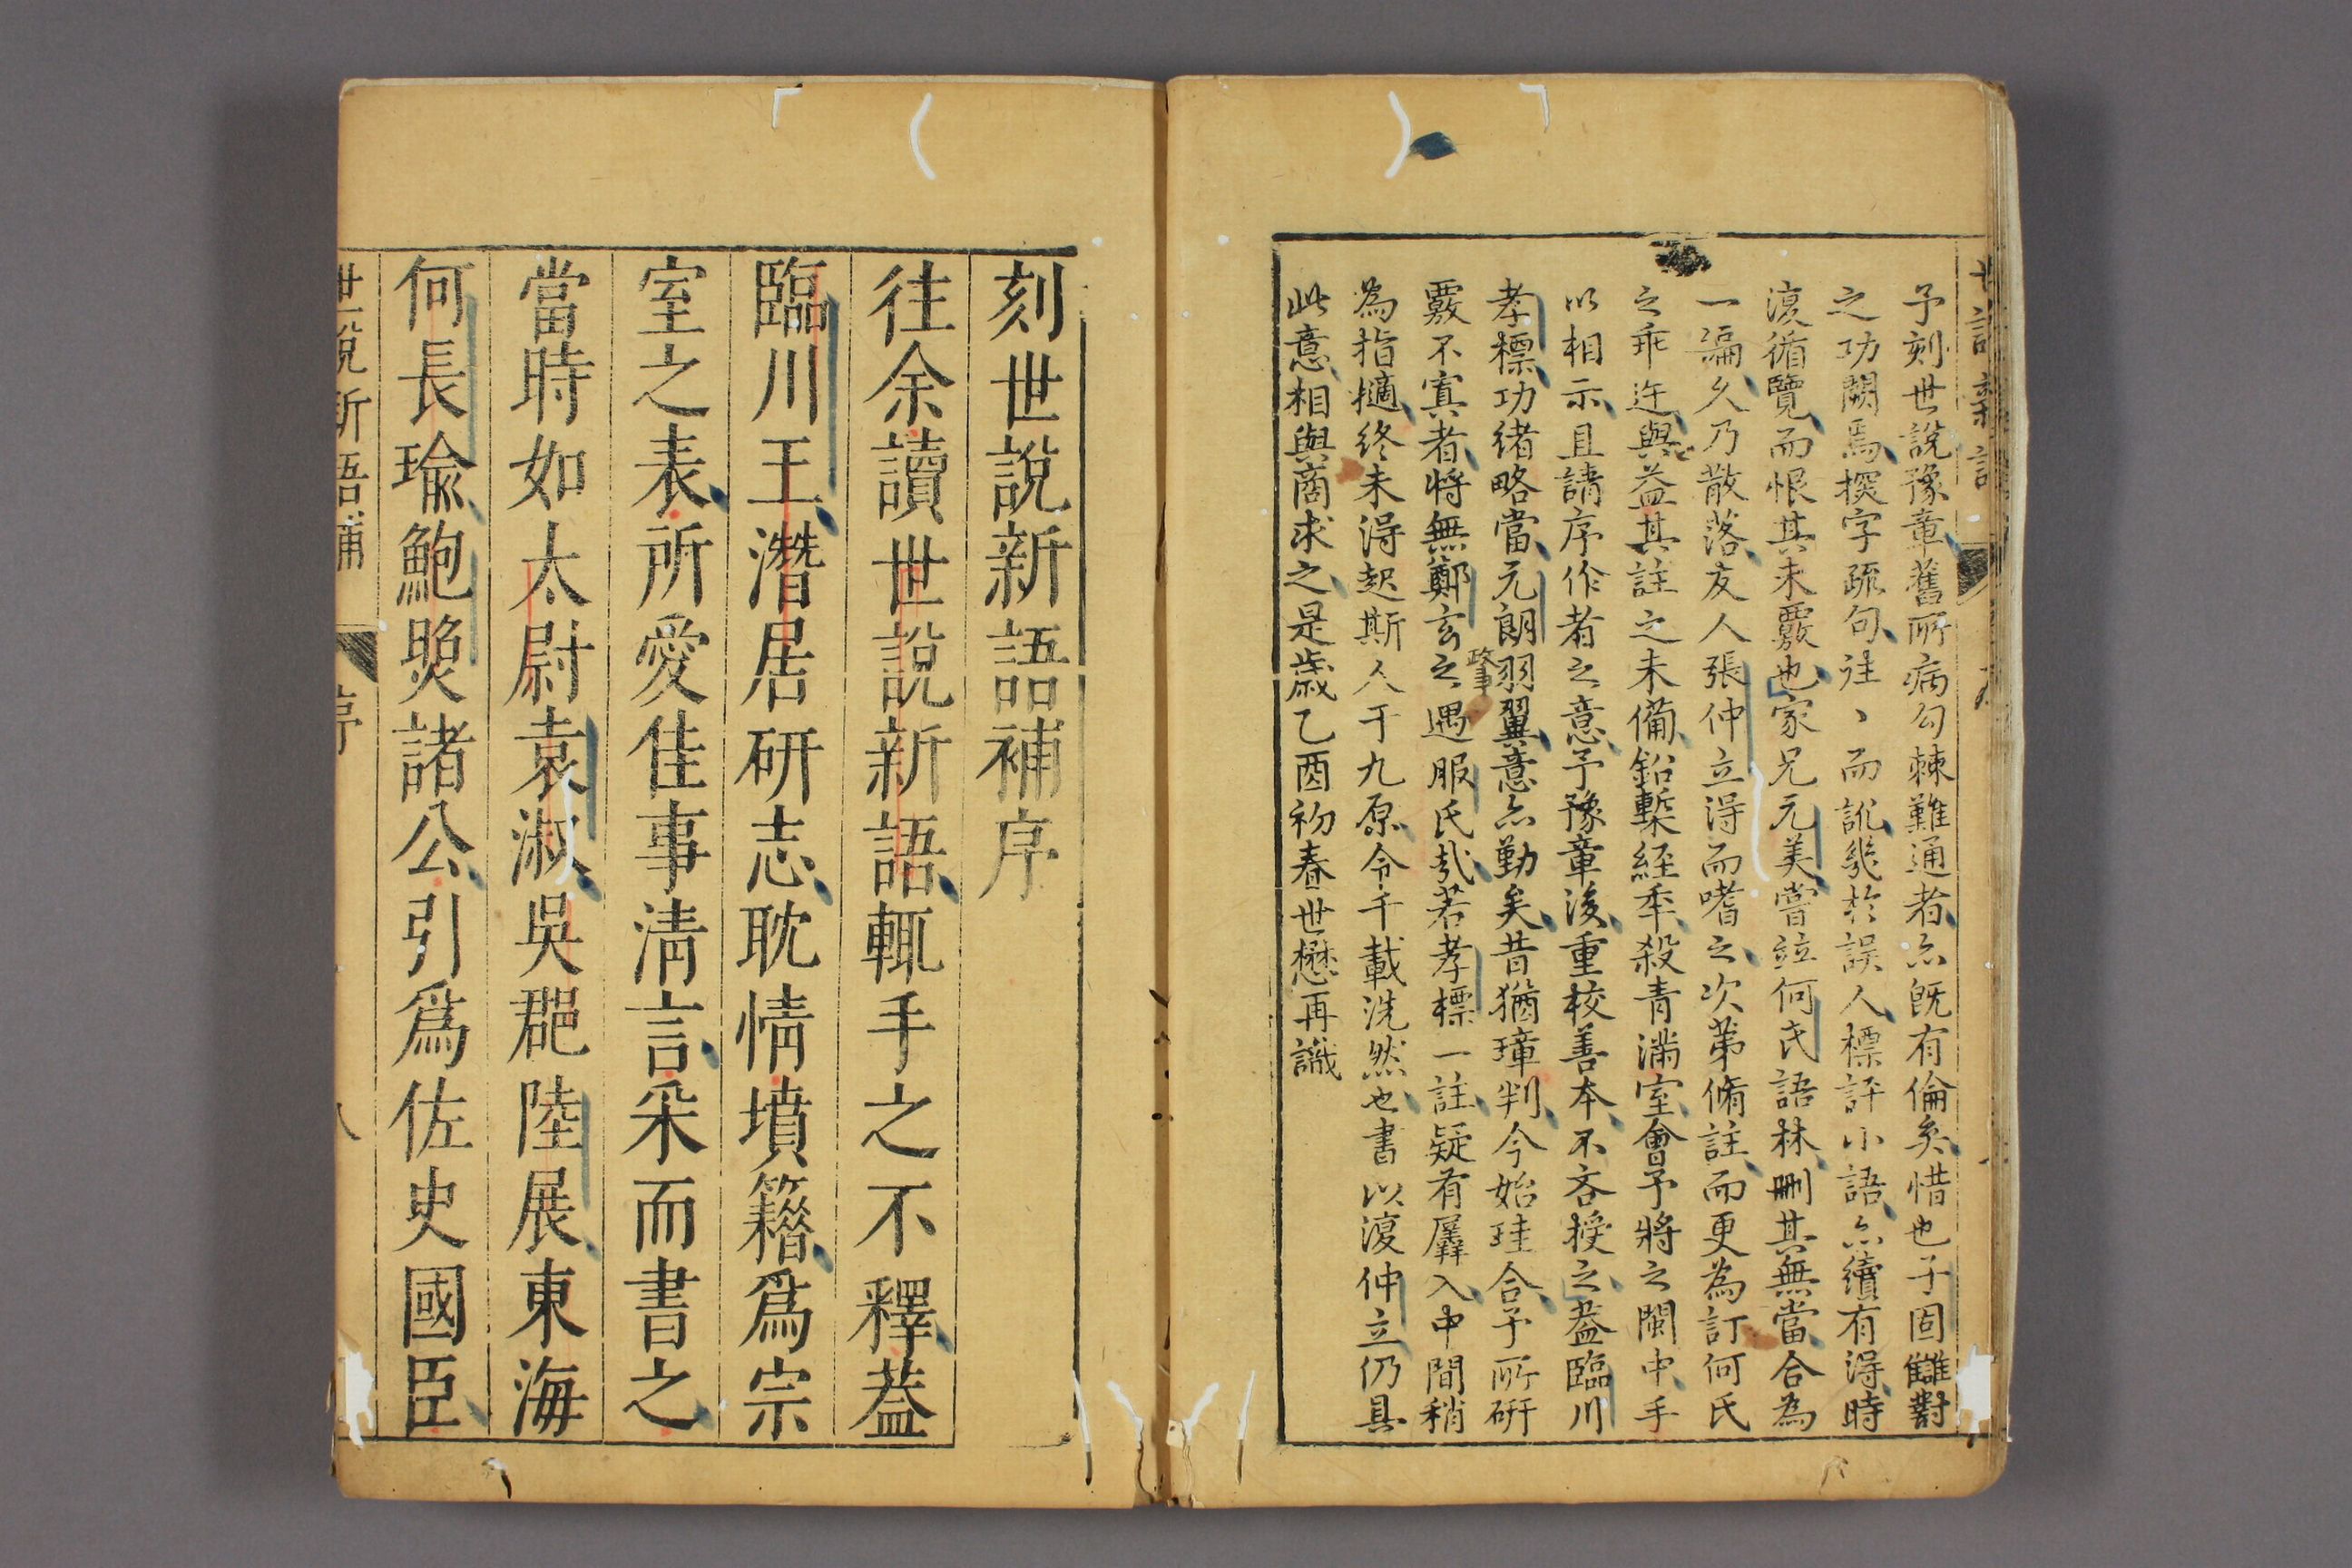 予刻世說豫章舊所病勾棘難通者亦旣有倫矣惜也子固讎對
之功闕焉揬字疏句往丶而訛幾於誤人標評小語亦續有得時
復循覽而恨其未覈也家兄元美嘗竝何氏語林刪其無當合為
一編久乃散落友人張仲立得而嗜之次第脩註而更為訂何氏
之乖迕與益其註之未備鉛槧經年殺青滿室會予將之閩中手
以相示且請序作者之意予豫章後重校善本不吝授之蓋臨川
孝標功緒略當元朗羽翼意亦勤矣昔猶璋判今始珪合予所硏
覈不寘者將無鄭玄之遇服氏哉若孝標一註疑有羼入中間稍
肇政
為指擿終未得起斯人于九原令千載洗然也書以復仲立仍具
此意相與商求之是歲乙酉初春世懋再識
刻世說新語補序
往余讀世說新語輒手之不釋蓋
臨川王潛居研志耽情墳籍爲宗
室之表所愛佳事淸言采而書之
當時如太尉袁淑吳郡陸展東海
何長瑜鮑煚諸公引爲佐史國臣
世說新語補
序
八